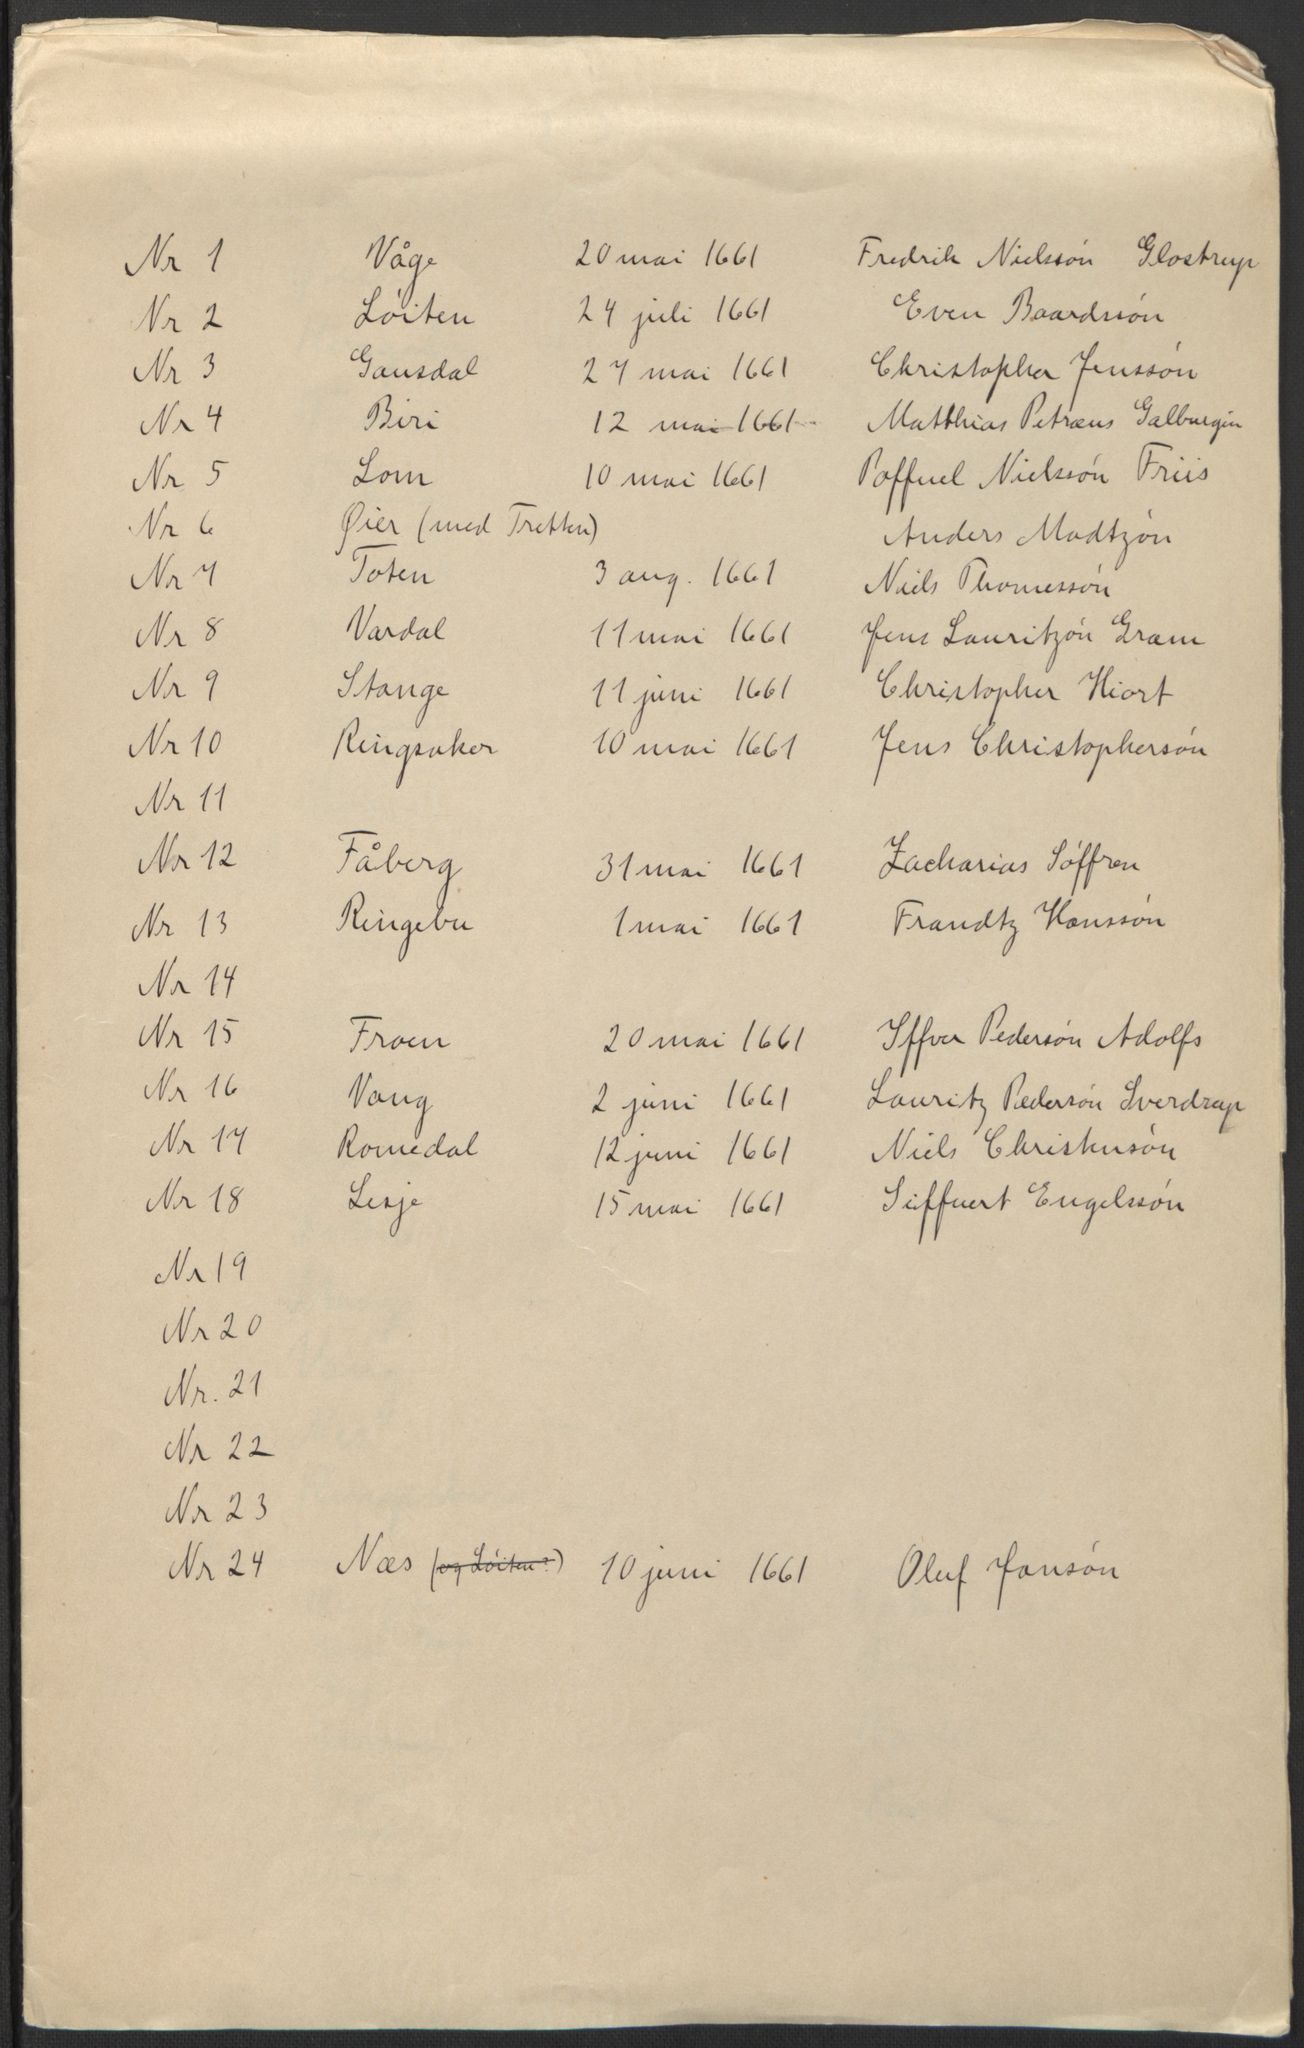 Nr 1 Våge 20 mai 1661 Fredrik Nielssön Glostrup
Nr 2 Löiten 24 juli 1661 Even Baardssön
Nr 3 Gausdal 27 mai 1661 Christopher Jenssön
Nr 4 Biri 12 mai 1661 Matthias Petræus Galburgin
Nr 5 Lom 10 mai 1661 Poffuel Nielssön Friis
Nr 6 Øier (med Tretten) Anders Madtzön
Nr 7 Toten 3 aug. 1661 Niels Thomessön
Nr 8 Vardal 11 mai 1661 Jens Lauritzön Gram
Nr 9 Stange 11 juni 1661 Christopher Hiort
Nr 10 Ringsaker 10 mai 1661 Jens Christophersön
Nr 11
Nr 12 Fåberg 31 mai 1661 Zacharias Söffren
Nr 13 Ringebu 1 mai 1661 Frandtz Hanssön
Nr 14
Nr 15 Froen 20 mai 1661 Iffver Pedersön Adolfs
Nr 16 Vang 2 juni 1661 Lauritz Pædersön Sverdrup
Nr 17 Romedal 12 juni 1661 Niels Christensön
Nr 18 Lesje 15 mai 1661 Seiffuert Engelssön
Nr 19
Nr 20
Nr. 21
Nr 22
Nr 23
Nr 24 Næs (og Löiten?) 10 juni 1661 Oluf Jonsön